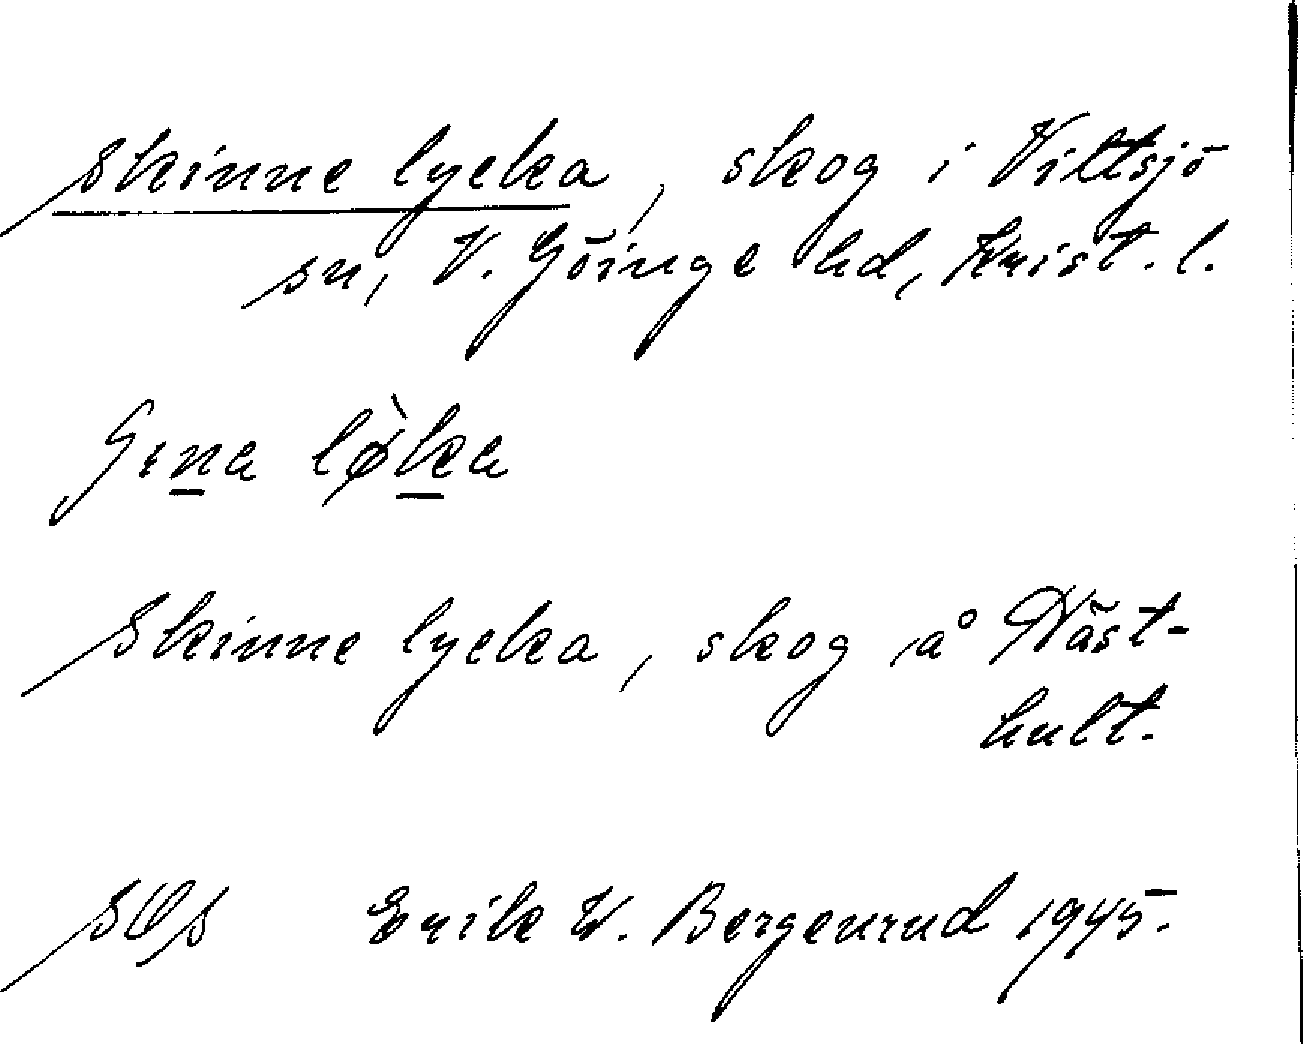 Skinne lycka, skog i Vittsjö
sn, V. Göinge hd, Krist. l.
lø̀ka
Skinne lycka, skog å Väst-
hult.
Erik W. Bergenrud 1945.